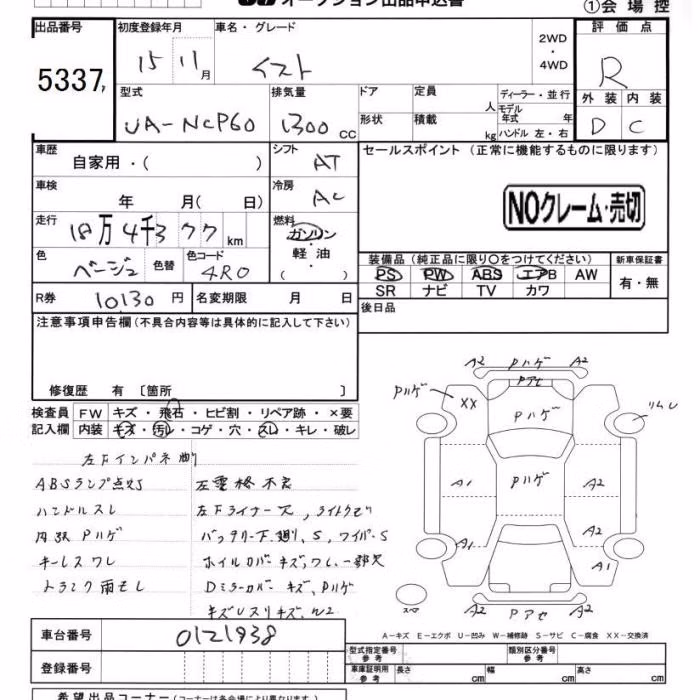 オークション出品申込書 ①会場控
出品番号 初度登録年月 車名・グレード 評価点
5337 15 11月 イスト 2WD・4WD R
型式 排気量 ドア 定員 人 ディーラー・並行 外装 内装
UA-NCP60 1300cc 形状 積載 kg モデル年式 年 ハンドル 左・右 D C
車歴 自家用・( ) シフト AT セールスポイント(正常に機能するものに限ります)
車検 年 月( 日) 冷房 AC
NOクレーム・売切
走行 18万4千377km 燃料 ガソリン・軽油・( )
色 ベージュ 色替 色コード 4R0 装備品(純正品に限り○をつけてください) 新車保証書
PS PW ABS エアB AW 有・無
R券 10,130円 名変期限 月 日 SR ナビ TV カワ
注意事項申告欄(不具合内容等は具体的に記入して下さい) 後日品
修復歴 有〔箇所 〕
検査員記入欄 FW キズ・飛石・ヒビ割・リペア跡・×要
内装 キズ・汚レ・コゲ・穴・スレ・キレ・破レ
左Fインパネ
ABSランプ点灯 左電格不良
ハンドルスレ 左Fライナー欠,ライトクモリ
内張Pハゲ
キーレスワレ ホイルカバーキズ,ワレ,一部欠
トランク雨モレ Dミラーカバーキズ,Pハゲ
A2 Pハゲ A2
Pハゲ Pアセ
XX Pハゲ リムレ
A1 Pハゲ A2
A2
A1 A1
スペア A2 Pアセ A2
A-キズ E-エクボ U-凹み W-補修跡 S-サビ C-腐食 XX-交換済
車台番号 0121938 型式指定番号 参考 類別区分番号 参考
登録番号 車庫証明用 参考 長さ cm 幅 cm 高さ cm
希望出品コーナー(コーナーは各会場により異なります)